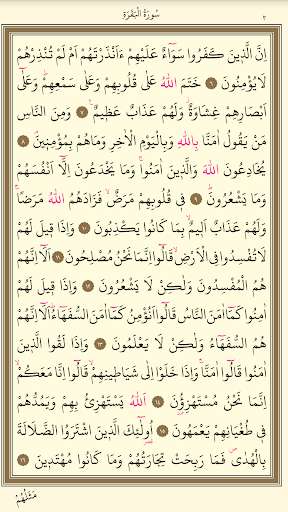 سُورَةُ الْبَقَرَةِ ٢
اِنَّ الَّذ۪ينَ كَفَرُوا سَوَٓاءٌ عَلَيْهِمْ ءَاَنْذَرْتَهُمْ اَمْ لَمْ تُنْذِرْهُمْ
لَا يُؤْمِنُونَ ﴿٦﴾ خَتَمَ اللّٰهُ عَلٰى قُلُوبِهِمْ وَعَلٰى سَمْعِهِمْۜ وَعَلٰٓى
اَبْصَارِهِمْ غِشَاوَةٌۘ وَلَهُمْ عَذَابٌ عَظ۪يمٌ۟ ﴿٧﴾ وَمِنَ النَّاسِ
مَنْ يَقُولُ اٰمَنَّا بِاللّٰهِ وَبِالْيَوْمِ الْاٰخِرِ وَمَا هُمْ بِمُؤْمِن۪ينَۢ ﴿٨﴾
يُخَادِعُونَ اللّٰهَ وَالَّذ۪ينَ اٰمَنُواۚ وَمَا يَخْدَعُونَ اِلَّٓا اَنْفُسَهُمْ
وَمَا يَشْعُرُونَۜ ﴿٩﴾ ف۪ي قُلُوبِهِمْ مَرَضٌۙ فَزَادَهُمُ اللّٰهُ مَرَضًاۚ
وَلَهُمْ عَذَابٌ اَل۪يمٌۙ بِمَا كَانُوا يَكْذِبُونَ ﴿١٠﴾ وَاِذَا ق۪يلَ لَهُمْ
لَا تُفْسِدُوا فِي الْاَرْضِۙ قَالُٓوا اِنَّمَا نَحْنُ مُصْلِحُونَ ﴿١١﴾ اَلَٓا اِنَّهُمْ
هُمُ الْمُفْسِدُونَ وَلٰكِنْ لَا يَشْعُرُونَ ﴿١٢﴾ وَاِذَا ق۪يلَ لَهُمْ
اٰمِنُوا كَمَٓا اٰمَنَ النَّاسُ قَالُٓوا اَنُؤْمِنُ كَمَٓا اٰمَنَ السُّفَهَٓاءُۜ اَلَٓا اِنَّهُمْ
هُمُ السُّفَهَٓاءُ وَلٰكِنْ لَا يَعْلَمُونَ ﴿١٣﴾ وَاِذَا لَقُوا الَّذ۪ينَ
اٰمَنُوا قَالُٓوا اٰمَنَّاۚ وَاِذَا خَلَوْا اِلٰى شَيَاط۪ينِهِمْۙ قَالُٓوا اِنَّا مَعَكُمْۙ
اِنَّمَا نَحْنُ مُسْتَهْزِؤُ۫نَ ﴿١٤﴾ اَللّٰهُ يَسْتَهْزِئُ بِهِمْ وَيَمُدُّهُمْ
ف۪ي طُغْيَانِهِمْ يَعْمَهُونَ ﴿١٥﴾ اُو۬لٰٓئِكَ الَّذ۪ينَ اشْتَرَوُا الضَّلَالَةَ
بِالْهُدٰىۖ فَمَا رَبِحَتْ تِجَارَتُهُمْ وَمَا كَانُوا مُهْتَد۪ينَ ﴿١٦﴾
مَثَلُهُمْ